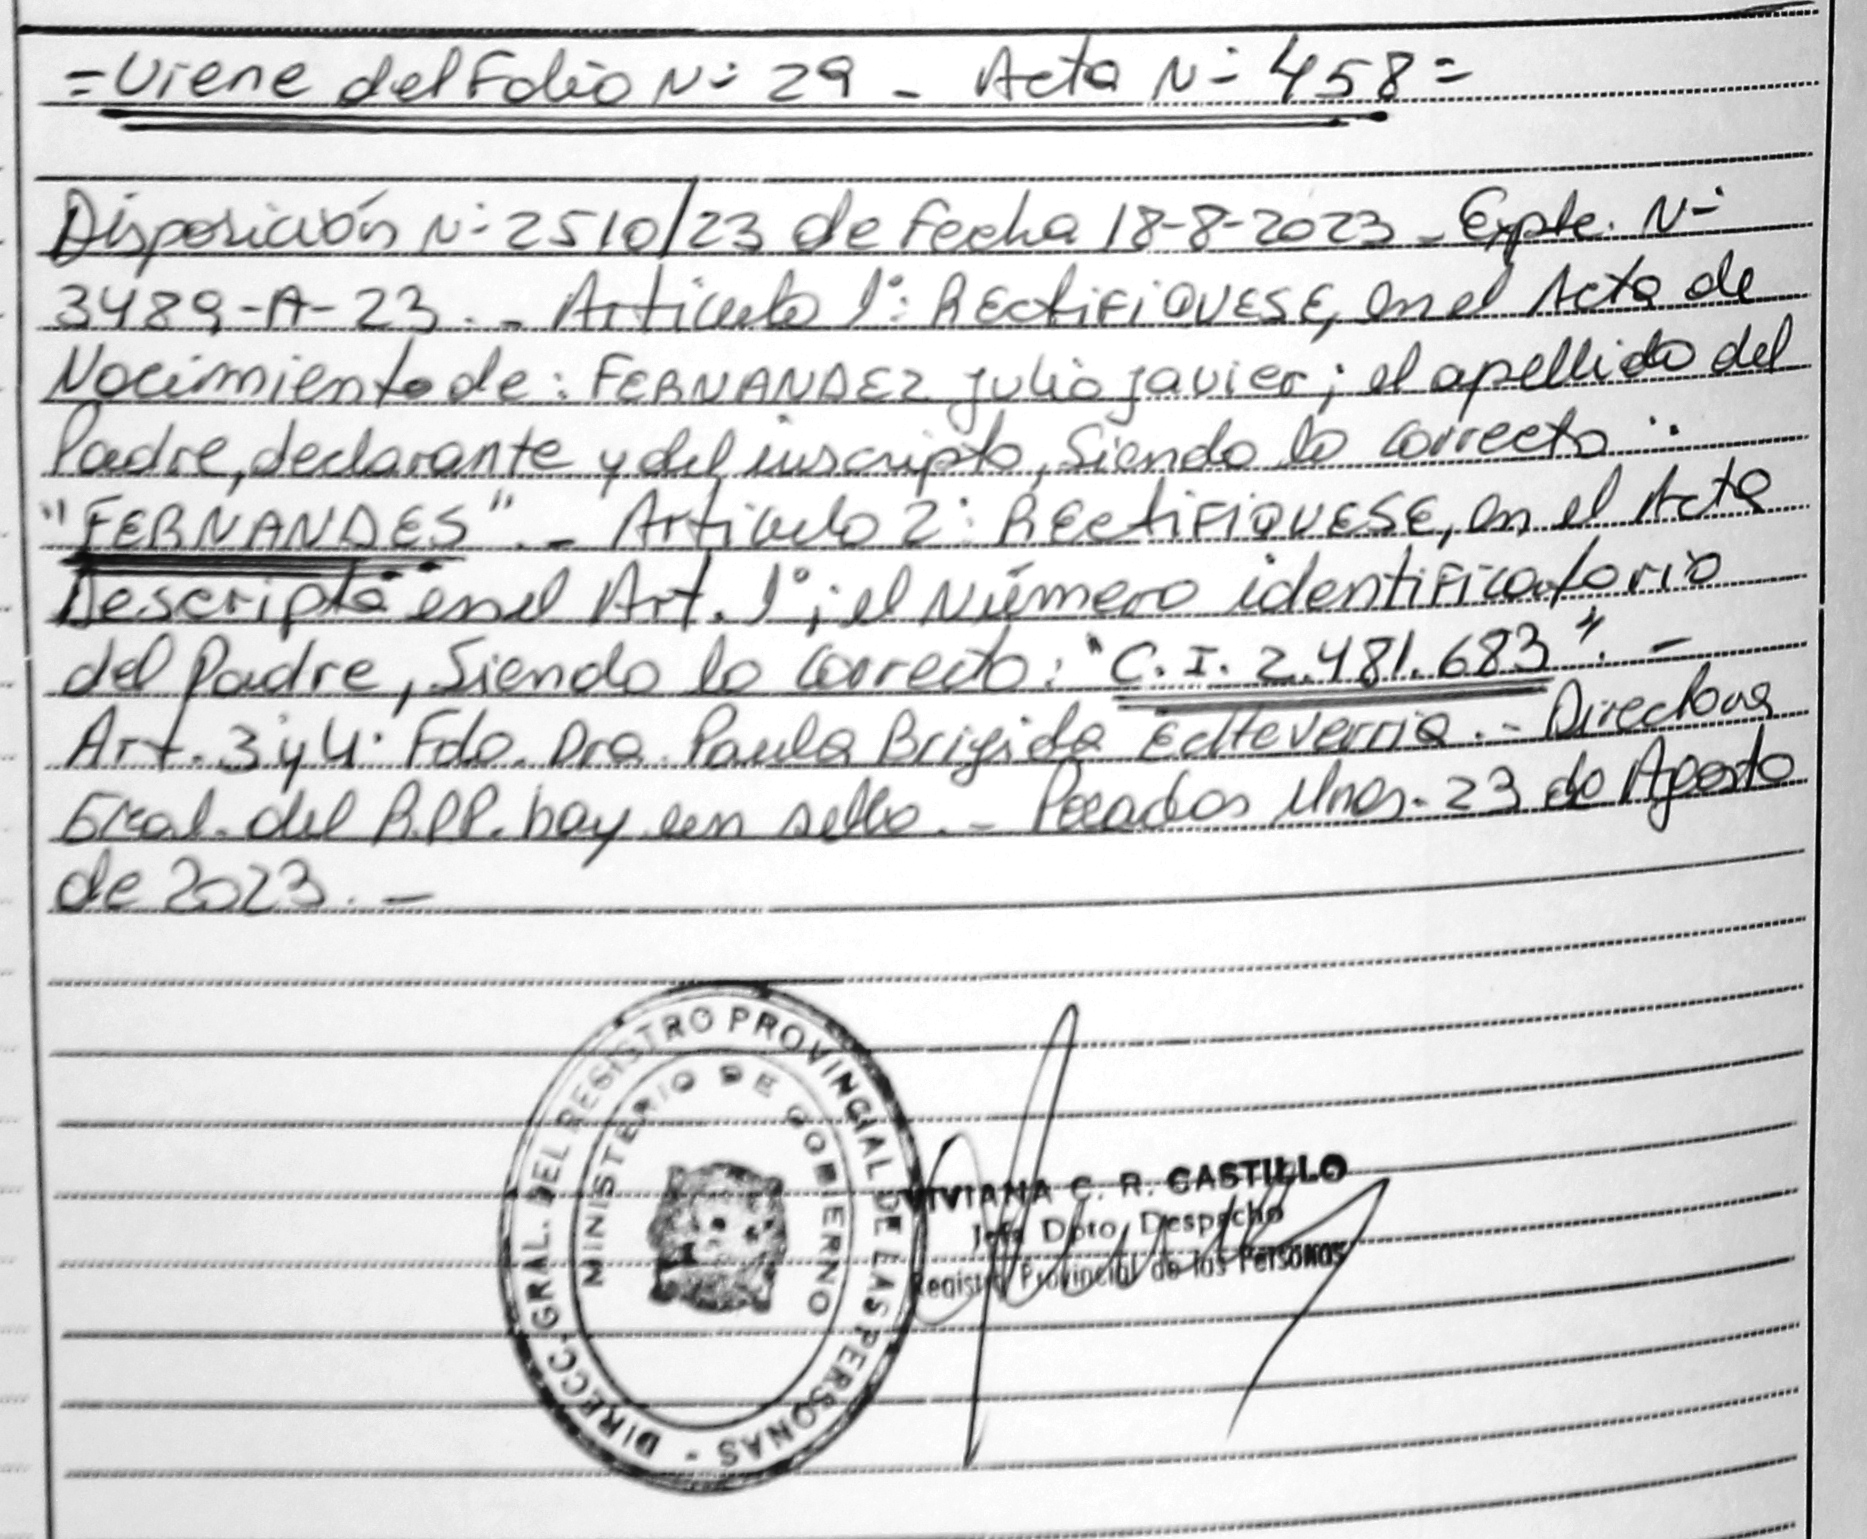 =Viene del Folio N- 29 - Acta N- 458=
Disposición N- 2510/23 de Fecha 18-8-2023 - Expte. N-
3489-A-23. - Articulo 1°: RECtiFiQUESE, en el Acta de
Nacimiento de: FERNANDEZ Julio Javier; el apellido del
Padre, declarante y del inscripto, Siendo lo correcto :
"FERNANDES". - Articulo 2: RECtiFiQUESE, en el Acta
Descripta en el Art. 1°; el Número identificatorio
del Padre, Siendo lo correcto: "C.I. 2.481.683". -
Art. 3 y 4. Fdo. Dra. Paula Brigida Echeverria. - Directora
Gral. del R.P.P. hay un sello. - Posadas Mnes. 23 de Agosto
de 2023. -
DIRECC. GRAL. DEL REGISTRO PROVINCIAL DE LAS PERSONAS -
MINISTERIO DE GOBIERNO
VIVIANA C. R. CASTILLO
Jefa Dpto. Despacho
Registro Provincial de las Personas